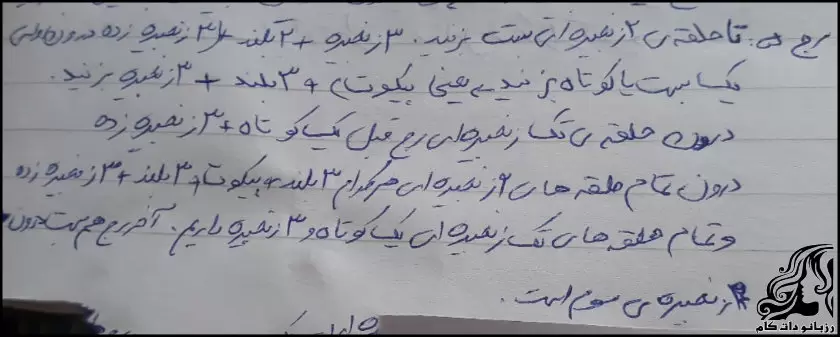 رج ۳: تا حلقه ی ۲ زنجیره ای بست بزنید. ۳ زنجیره + ۲ بلند + (۳ زنجیره زده درون اولی
یک بست یا کوتاه بزنید یعنی پیکوت) + ۳ بلند + ۳ زنجیره بزنید.
درون حلقه ی تک زنجیره ای رج قبل یک کوتاه + ۳ زنجیره زده
درون تمام حلقه های ۲ زنجیره ای هرکدام ۳ بلند + پیکوت + ۳ بلند + ۳ زنجیره زده
و تمام حلقه های تک زنجیره ای یک کوتاه و ۳ زنجیره داریم. آخر رج هم بست درون
زنجیره ی سوم است.
رزبانو دات کام